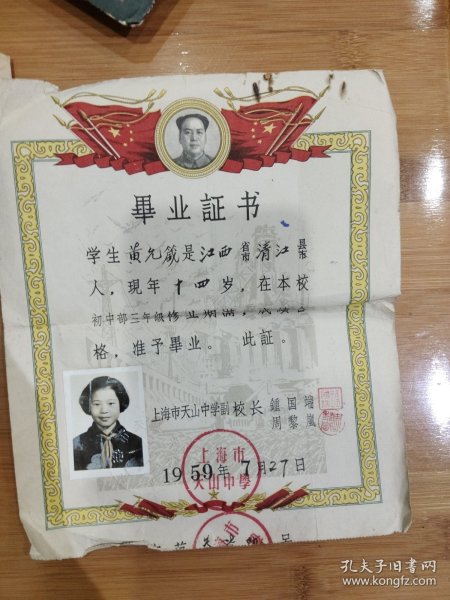 畢业証书
学生黄允箴是江西省市清江县市
人，现年十四岁，在本校
初中部三年级修业期满，成绩
格，准予畢业。此証。
上海市天山中学副校长 鍾国
周黎嵐
1959年7月27日
上海市
天山中學
孔夫子旧书网
www.kongfz.com